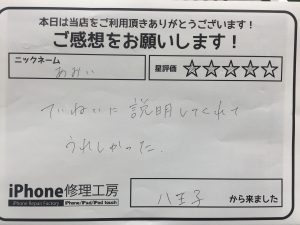 本日は当店をご利用頂きありがとうございます!
ご感想をお願いします!
ニックネーム
あみい
星評価 ☆☆☆☆☆
ていねいに説明してくれて
うれしかった.
iPhone修理工房
iPhone Repair Factory iPhone/iPad/iPod touch
八王子 から来ました